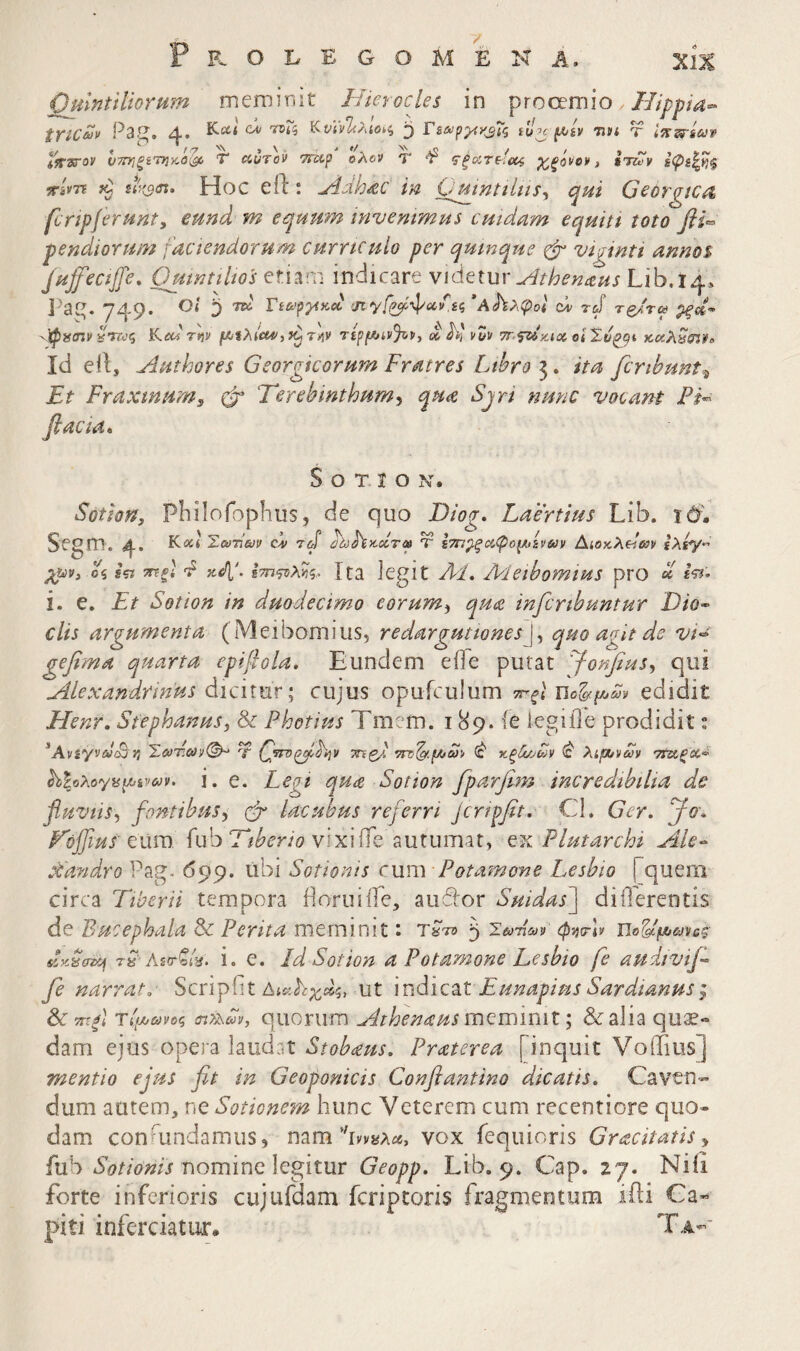 PROLEGOMENA. XIX
Quintiliorum meminit Hierocles in procemio Hippia-
tricῶν Pag. 4. Καὶ ἐν τοῖς Κυϊντιλίοις ὃ Γεωργικοῖς εὕρομεν τινὶ τ ἱππέων
ἵππον ὑπηρετηκόᾳ τ αὐτὸν παρ' ὅλον τ τ στρατείας χρόνον, ἐτῶν ἐφεξῆς
πέντε κὶ εἴκοσι. Hoc est: Adhæc in Quintiliis, qui Georgica
scripserunt, eundem equum invenimus cuidam equiti toto sti-
pendiorum faciendorum curriculo per quinque & viginti annos
suffecisse. Quintilios etiam indicare videtur Athenæus Lib. 14.
Pag. 749. Οἱ ὃ τὰ Γεωργικὰ συγγράψαντες Ἀδελφοὶ ἐν τῷ τρίτῳ γρά-
φουσιν οὕτως Καὶ τὴν μελίαν, κὶ τὴν τέρμινθον, ἃ δὴ νῦν πιστάκια οἱ Σύροι καλοῦσιν.
Id est, Authores Georgicorum Fratres Libro 3. ita scribunt,
Et Fraxinum, & Terebinthum, quæ Syri nunc vocant Pi-
stacia.
SOTION.
Sotion, Philosophus, de quo Diog. Laërtius Lib. 10.
Segm. 4. Καὶ Σωτίων ἐν τῷ δωδεκάτῳ τ ἐπιγραφομένων Διοκλείων ἐλέγ-
χων, ὅς ἐστι περὶ τ κδʹ. ἐπιστολῆς. Ita legit M. Meibomius pro ἅ ἐστι.
i. e. Et Sotion in duodecimo eorum, quæ inscribuntur Dio-
clis argumenta (Meibomius, redargutiones), quo agit de vi-
gesima quarta epistola. Eundem esse putat Jonsius, qui
Alexandrinus dicitur; cujus opusculum περὶ Ποταμῶν edidit
Henr. Stephanus, & Photius Tmem. 189. se legisse prodidit:
Ἀνεγνώσθη Σωτίωνος τ σποράδην περὶ ποταμῶν ἐ κρηνῶν ἐ λιμνῶν παρα-
δοξολογουμένων. i. e. Legi quæ Sotion sparsim incredibilia de
fluviis, fontibus, & lacubus referri scripsit. Cl. Ger. Jo.
Vossius eum sub Tiberio vixisse autumat, ex Plutarchi Ale-
xandro Pag. 699. ubi Sotionis cum Potamone Lesbio [quem
circa Tiberii tempora floruisse, auctor Suidas] disserentis
de Bucephala & Perita meminit: Τοῦτο ὃ Σωτίων φησὶν Ποτάμωνος
ἀκοῦσαι τοῦ Λεσβίου. i. e. Id Sotion a Potamone Lesbio se audivis-
se narrat. Scripsit Διαδοχὰς, ut indicat Eunapius Sardianus;
& περὶ Τίμωνος σίλλων, quorum Athenæus meminit; & alia quæ-
dam ejus opera laudat Stobæus. Præterea [inquit Vossius]
mentio ejus fit in Geoponicis Constantino dicatis. Caven-
dum autem, ne Sotionem hunc Veterem cum recentiore quo-
dam confundamus, nam Ἴννουλα, vox sequioris Græcitatis,
sub Sotionis nomine legitur Geopp. Lib. 9. Cap. 27. Nisi
forte inferioris cujusdam scriptoris fragmentum isti Ca-
piti inserciatur. TA-